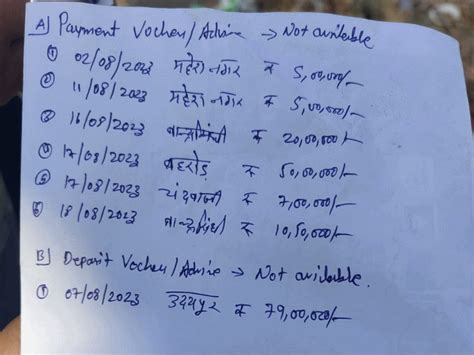 A) Payment Vocher/Advise → Not available
① 02/08/2023 महेश नगर रू 5,00,000/-
② 11/08/2023 महेश नगर रू 5,00,000/-
③ 16/08/2023 रू 20,00,000/-
④ 17/08/2023 बहरोड़ रू 50,00,000/-
⑤ 17/08/2023 चंदवाजी रू 7,00,000/-
⑥ 18/08/2023 रू 10,50,000/-
B) Deposit Vocher/Advise → Not available.
① 07/08/2023 उदयपुर रू 79,00,000/-